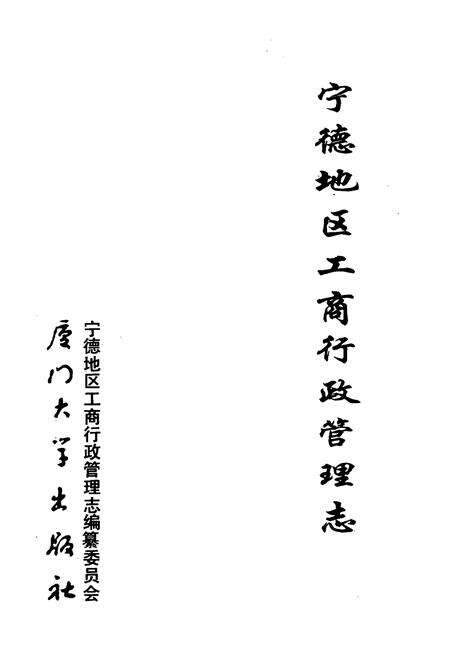 宁德地区工商行政管理志
宁德地区工商行政管理志编纂委员会
厦门大学出版社